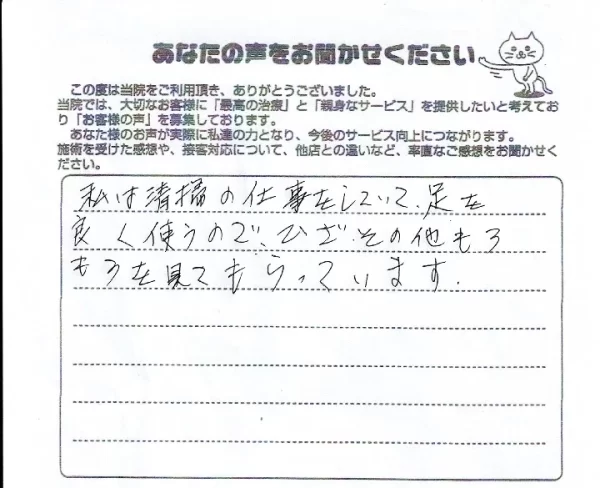 あなたの声をお聞かせください
この度は当院をご利用頂き、ありがとうございました。
当院では、大切なお客様に「最高の治療」と「親身なサービス」を提供したいと考えてお
り「お客様の声」を募集しております。
あなた様のお声が実際に私達の力となり、今後のサービス向上につながります。
施術を受けた感想や、接客対応について、他店との違いなど、率直なご感想をお聞かせく
ださい。
私は清掃の仕事をしていて、足を
良く使うので、ひざ、その他もろ
もろを見てもらっています.